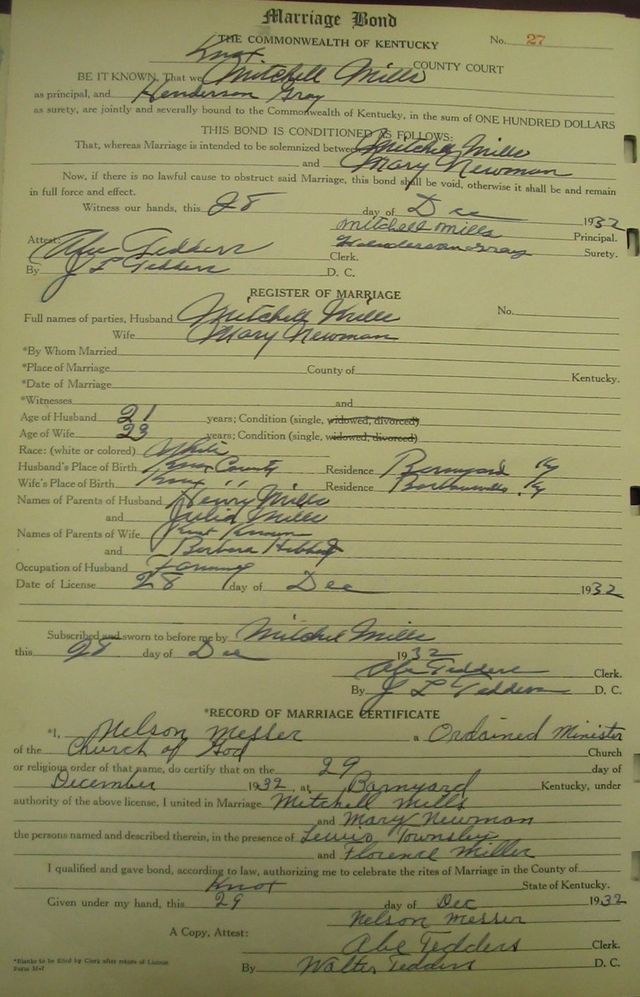 Marriage Bond
THE COMMONWEALTH OF KENTUCKY No. 27
Knox COUNTY COURT
BE IT KNOWN, That we Mitchell Mills
as principal, and Henderson Gray
as surety, are jointly and severally bound to the Commonwealth of Kentucky, in the sum of ONE HUNDRED DOLLARS
THIS BOND IS CONDITIONED AS FOLLOWS:
That, whereas Marriage is intended to be solemnized between Mitchell Mills
and Mary Newman
Now, if there is no lawful cause to obstruct said Marriage, this bond shall be void, otherwise it shall be and remain
in full force and effect.
Witness our hands, this 28 day of Dec 1932
Mitchell Mills Principal.
Attest: Abe Tedders Clerk. Henderson Gray Surety.
By J L Tedders D. C.
REGISTER OF MARRIAGE
Full names of parties, Husband Mitchell Mills No.
Wife Mary Newman
*By Whom Married
*Place of Marriage County of Kentucky.
*Date of Marriage
*Witnesses and
Age of Husband 21 years; Condition (single, widowed, divorced)
Age of Wife 23 years; Condition (single, widowed, divorced)
Race: (white or colored) White
Husband's Place of Birth Knox County Residence Barnyard Ky
Wife's Place of Birth Knox " " Residence Barbourville, Ky
Names of Parents of Husband Henry Mills
and Julia Mills
Names of Parents of Wife Not Known
and Barbara
Occupation of Husband Farming
Date of License 28 day of Dec 1932
Subscribed and sworn to before me by Mitchel Mills
this 28 day of Dec 1932
Abe Tedders Clerk.
By J L Tedders D. C.
*RECORD OF MARRIAGE CERTIFICATE
*I, Nelson Messer a Ordained Minister
of the Church of God Church
or religious order of that name, do certify that on the 29 day of
December 1932, at Barnyard Kentucky, under
authority of the above license, I united in Marriage Mitchell Mills
and Mary Newman
the persons named and described therein, in the presence of Lewis Townsley
and Florence Miller
I qualified and gave bond, according to law, authorizing me to celebrate the rites of Marriage in the County of
Knox State of Kentucky.
Given under my hand, this 29 day of Dec 1932
Nelson Messer
A Copy, Attest: Abe Tedders Clerk.
By Walter Tedders D. C.
*Blanks to be filled by Clerk after return of License